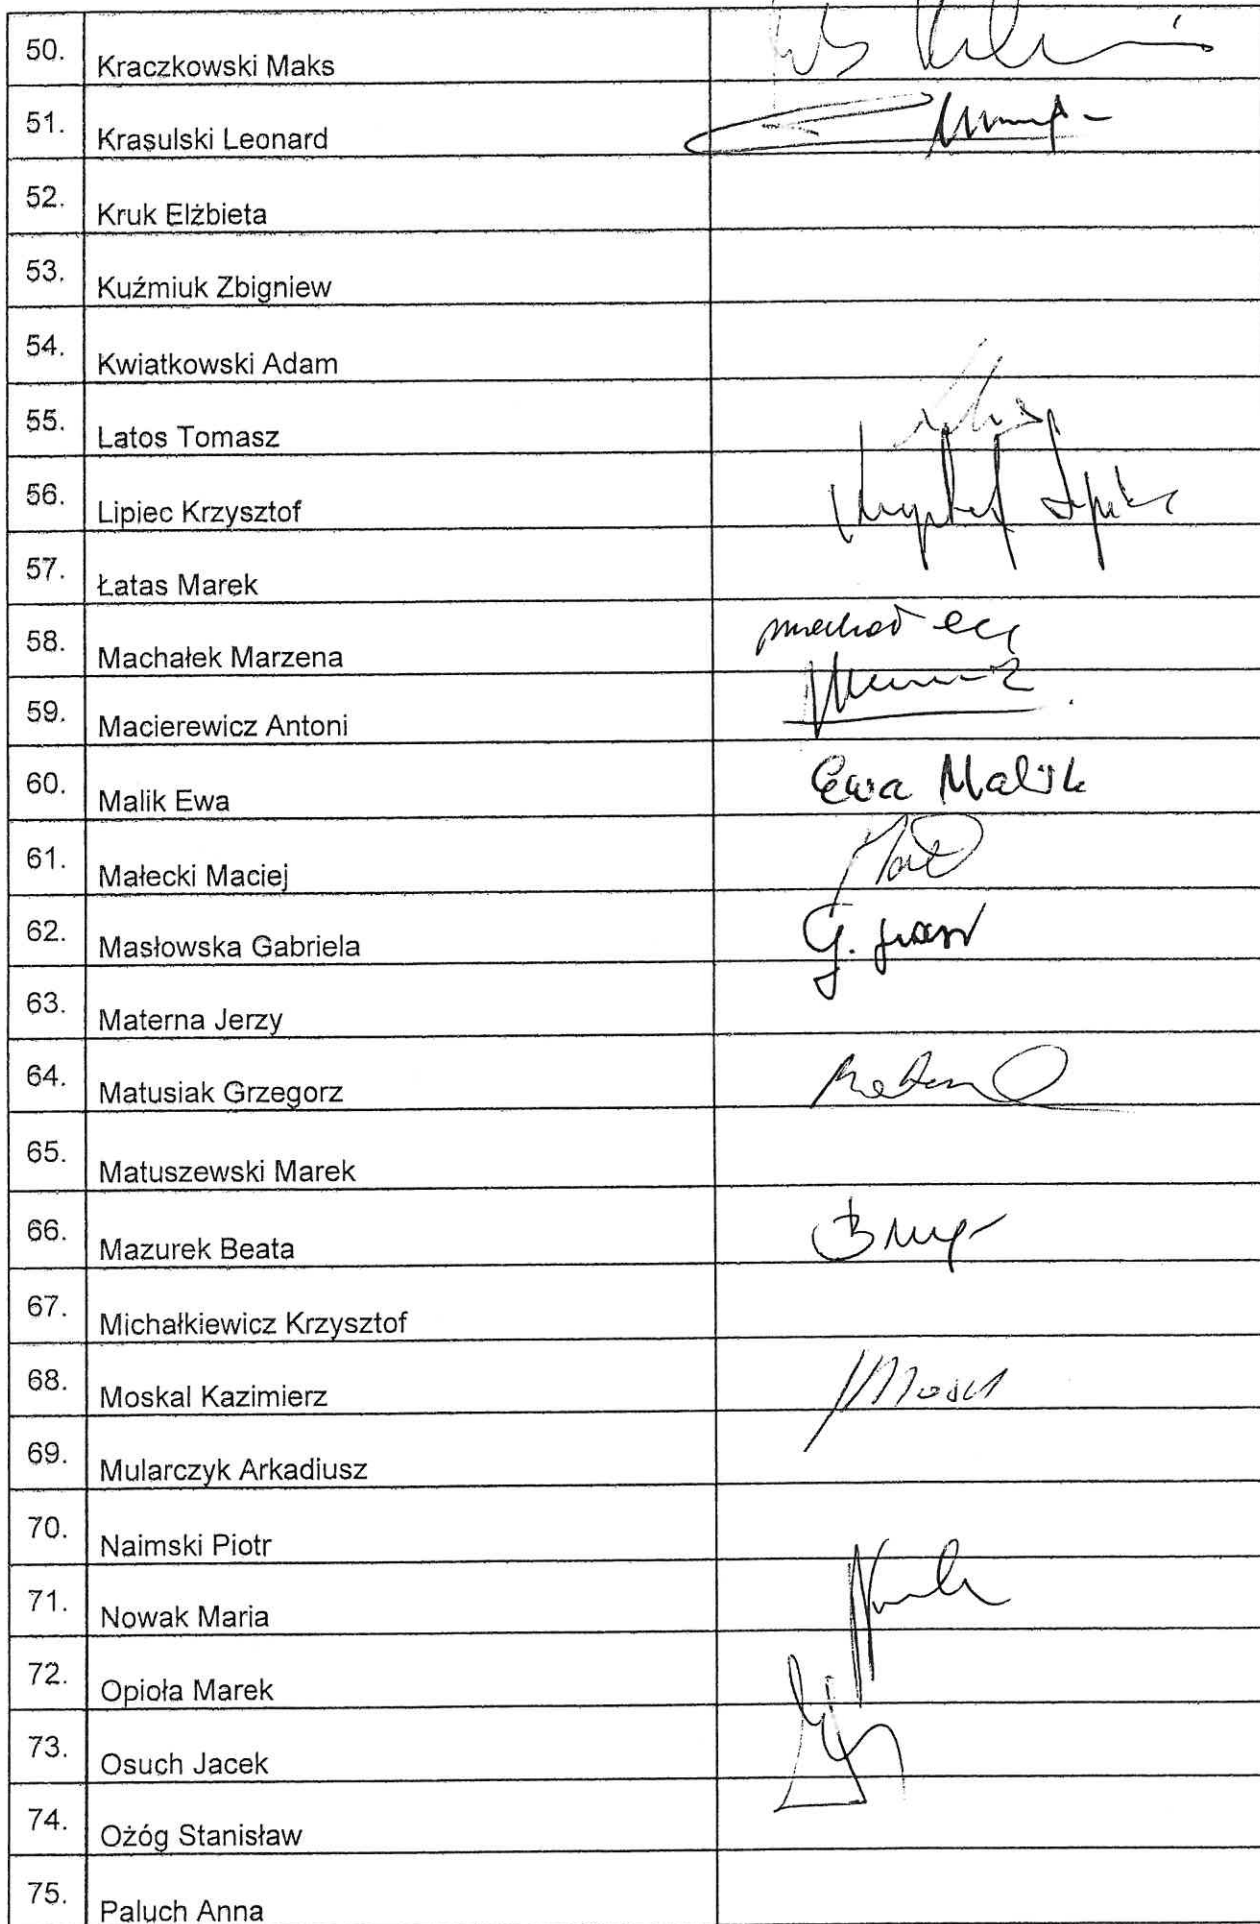 50. Kraczkowski Maks
51. Krasulski Leonard
52. Kruk Elżbieta
53. Kuźmiuk Zbigniew
54. Kwiatkowski Adam
55. Latos Tomasz
56. Lipiec Krzysztof
57. Łatas Marek
58. Machałek Marzena
59. Macierewicz Antoni
60. Malik Ewa Ewa Malik
61. Małecki Maciej
62. Masłowska Gabriela
63. Materna Jerzy
64. Matusiak Grzegorz
65. Matuszewski Marek
66. Mazurek Beata
67. Michałkiewicz Krzysztof
68. Moskal Kazimierz
69. Mularczyk Arkadiusz
70. Naimski Piotr
71. Nowak Maria
72. Opioła Marek
73. Osuch Jacek
74. Ożóg Stanisław
75. Paluch Anna